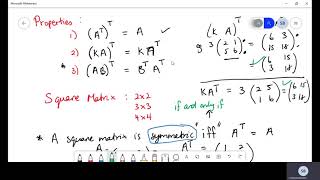 Microsoft Whiteboard
Properties :
1) (A^T)^T = A ✓
2) (KA)^T = KA^T
3) (AB)^T = B^T A^T
(K A)^T
g 3 (2 1 5 6)^T = (6 3 15 18)^T
= (6 15 3 18)
KA^T = 3 (2 5 1 6) = (6 15 3 18)
Square Matrix : 2x2
3x3
4x4
if and only if
* A square matrix is "symmetric" iff A^T = A
A^T = (1 2
SB